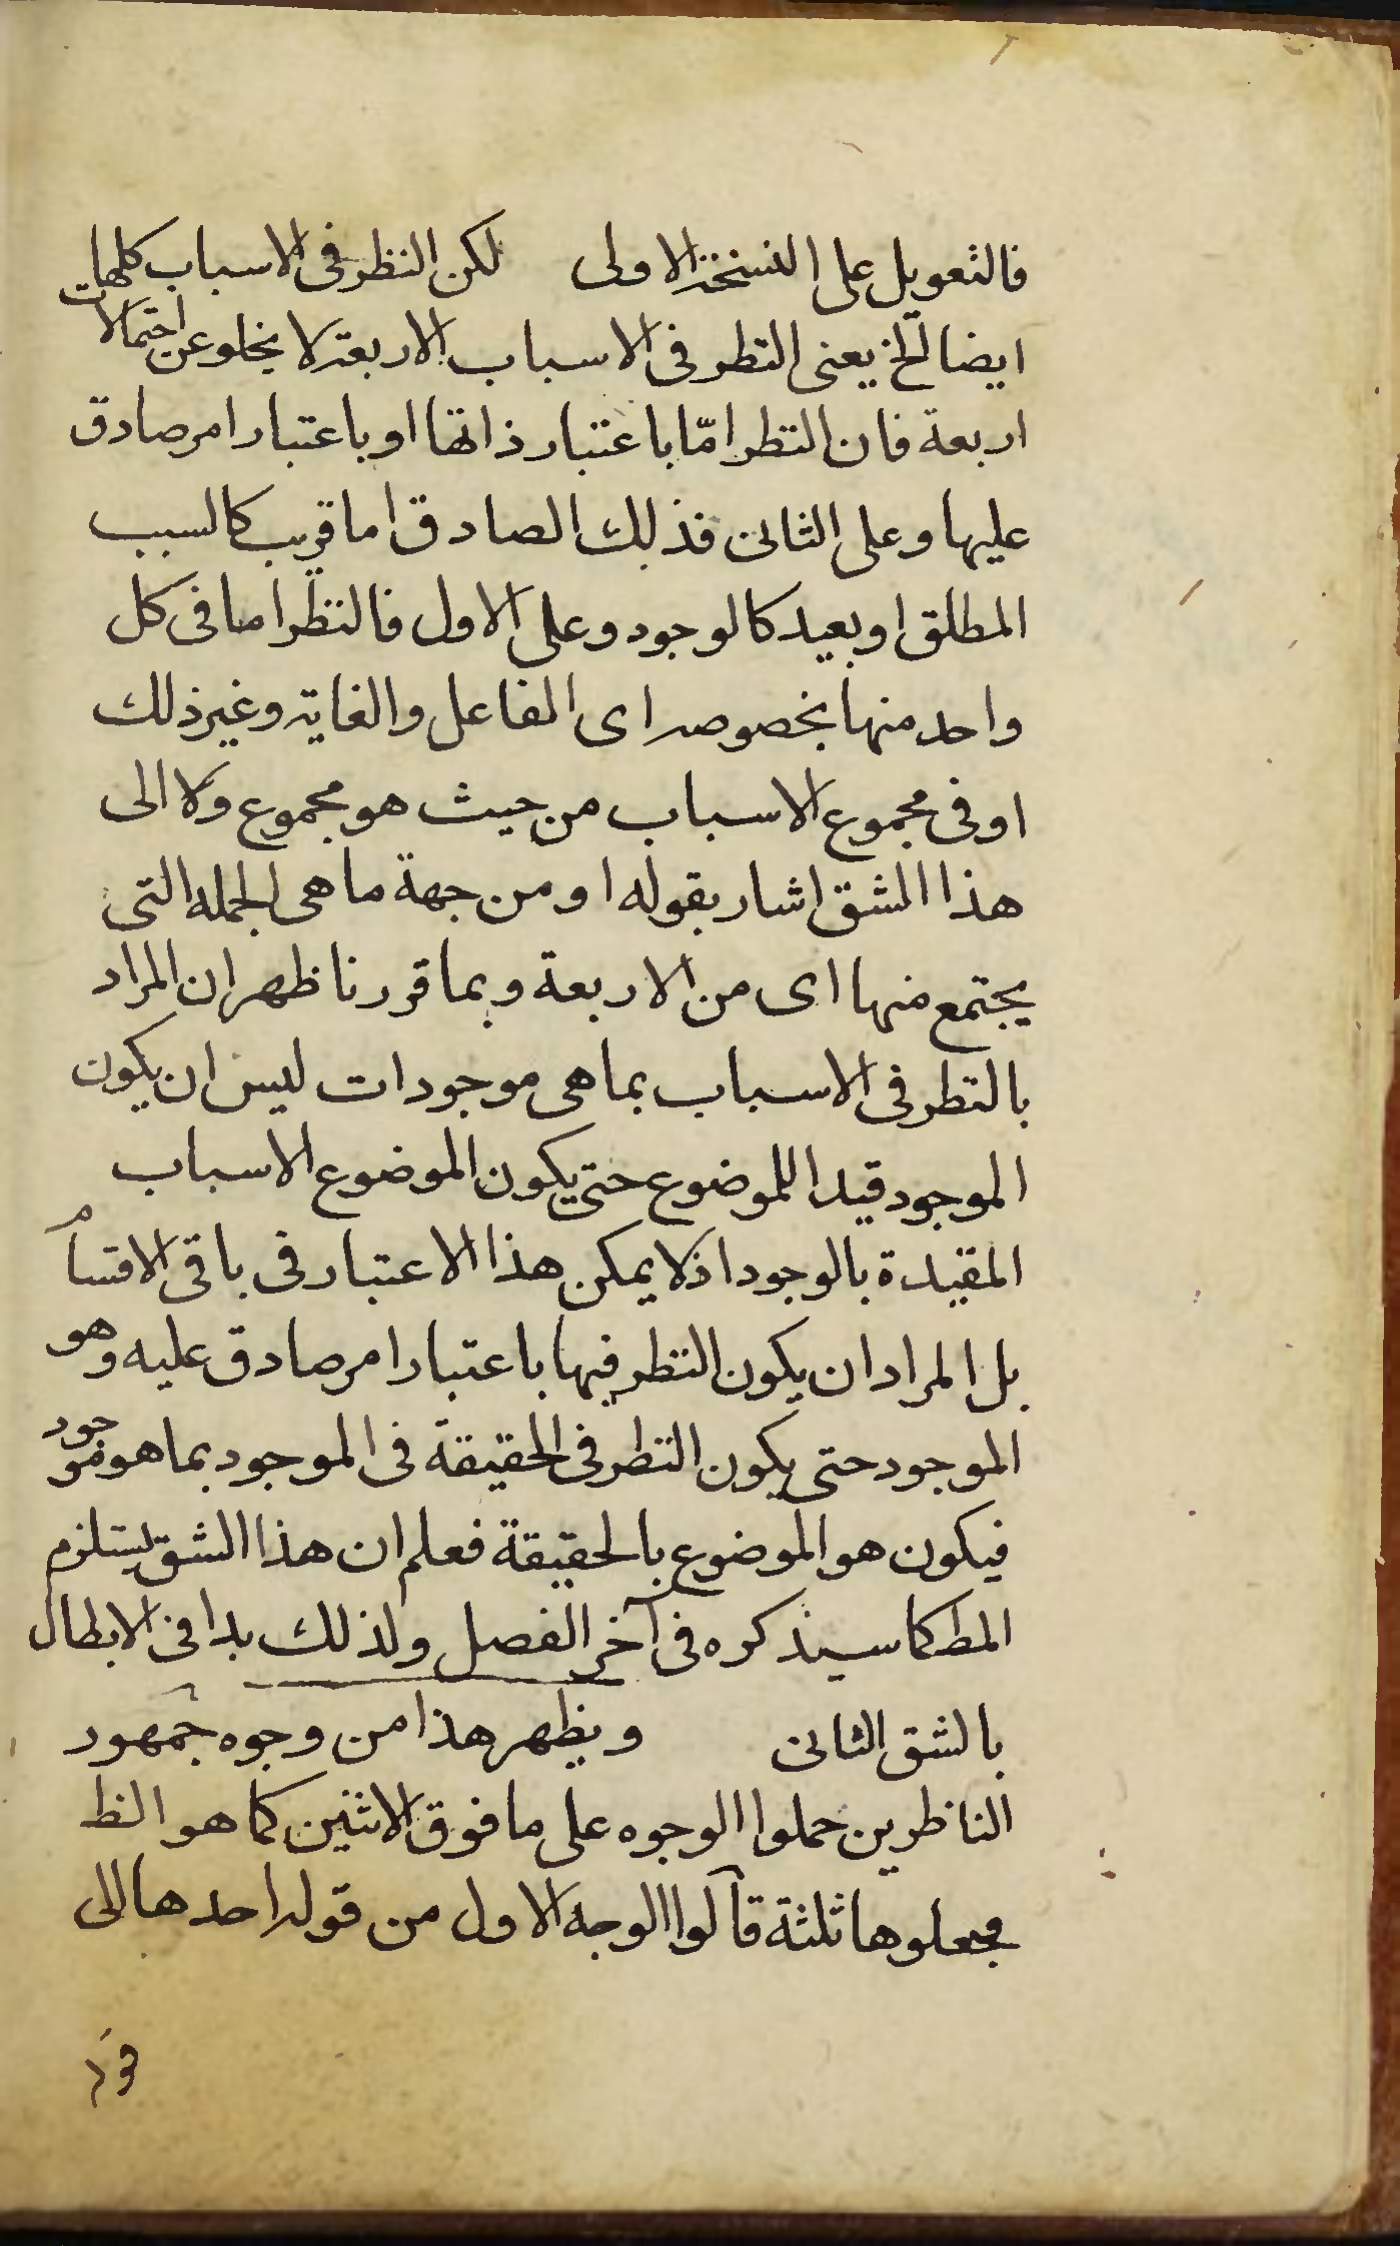 فالتعويل على النسخة الاولى لكن النظر فى الاسباب كلها
ايضا الخ يعنى النظر فى الاسباب الاربعة لا يخلو عن احتمالات
اربعة فان النظر امّا باعتبار ذاتها او باعتبار امر صادق
عليها وعلى الثانى فذلك الصادق اما قريب كالسبب
المطلق او بعيد كالوجود وعلى الاول فالنظر اما فى كل
واحد منها بخصوصه اى الفاعل والغاية وغير ذلك
او فى مجموع الاسباب من حيث هو مجموع ولا الى
هذا الشق اشار بقوله او من جهة ما هى الجمله التى
يجتمع منها اى من الاربعة وبما قررنا ظهر ان المراد
بالنظر فى الاسباب بما هى موجودات ليس ان يكون
الموجود قيدا للموضوع حتى يكون الموضوع الاسباب
المقيدة بالوجود اذ لا يمكن هذا الاعتبار فى باقى الاقسام
بل المراد ان يكون النظر فيها باعتبار امر صادق عليه وهو
الموجود حتى يكون النظر فى الحقيقة فى الموجود بما هو موجود
فيكون هو الموضوع بالحقيقة فعلم ان هذا الشق يستلزم
المط كما سيذكره فى آخر الفصل ولذلك بدا فى الابطال
بالشق الثانى ويظهر هذا من وجوه جمهور
الناظرين حملوا الوجوه على ما فوق الاثنين كما هو الظ
فجعلوها ثلثة قالوا الوجه الاول من قوله احدها الى